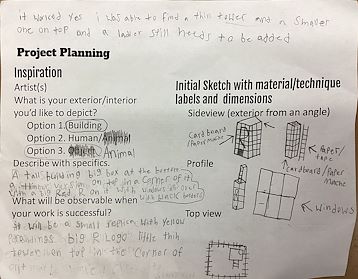 it worked yes i was able to find a thin tower and a smaller
one on top and a lader still needs to be added
Project Planning
Inspiration
Artist(s)
What is your exterior/interior
you'd like to depict?
Option 1. Building
Option 2. Human/Animal
Option 3. Object Animal
Describe with specifics.
A tall building big box at the bottom
a thinner version on top in a corner of it
With a big Red R on it with windows all over
with black borders
What will be observable when
your work is successful?
It will be a small replica with yellow
big R Logo little thin
tower on top in the corner of
Initial Sketch with material/technique
labels and dimensions
Sideview (exterior from an angle)
Cardboard
/Paper mache
Paper/
tape
Profile
Cardboard/Paper
mache
Windows
Top view